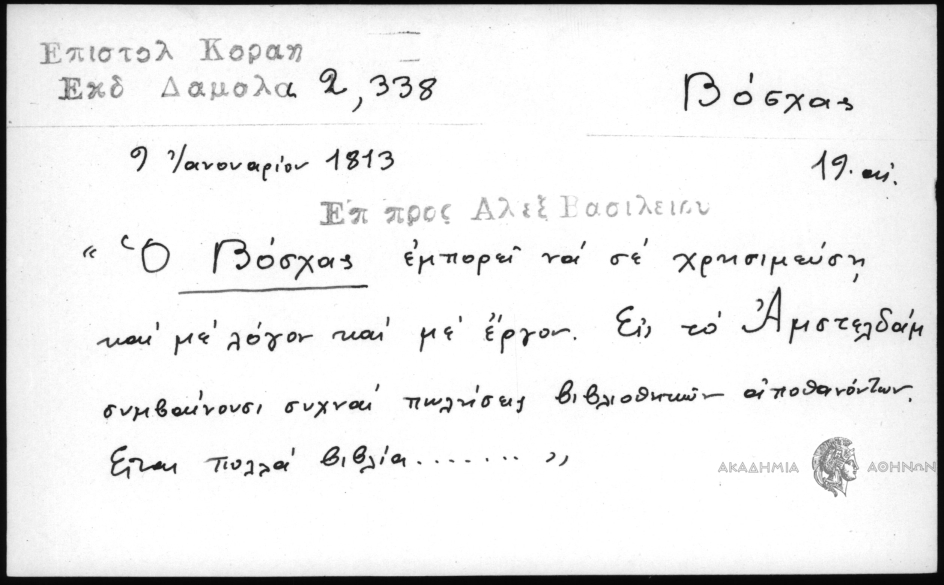 Επιστολ Κοραη
Εκδ Δαμολα 2,338
Βόσχας
9 Ἰανουαρίου 1813
19. αἰ.
Επ προς Αλεξ Βασιλειου
“ Ὁ Βόσχας ἐμπορεῖ νά σέ χρησιμεύσῃ
καί μέ λόγον καί μέ ἔργον. Εἰς τό Ἀμστελδάμ
συμβαίνουσι συχναί πωλήσεις βιβλιοθηκῶν ἀποθανόντων.
Εἶναι πολλά βιβλία........ „
ΑΚΑΔΗΜΙΑ ΑΘΗΝΩΝ